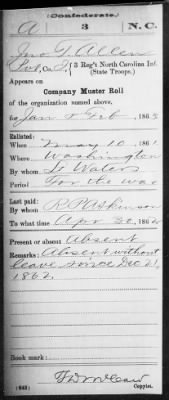 (Confederate.)
A 3 N.C.
Jno T. Allen
Pvt, Co. I, 3 Reg't North Carolina Inf.
(State Troops.)
Appears on
Company Muster Roll
of the organization named above,
for Jan & Feb, 1863
Enlisted:
When May 10, 1861
Where Washington
By whom Lt Waters
Period For the war
Last paid:
By whom R P Atkinson
To what time Apr 30, 1862
Present or absent Absent
Remarks: Absent without
leave since Dec 21,
1862.
Book mark:
(642)
Copyist.